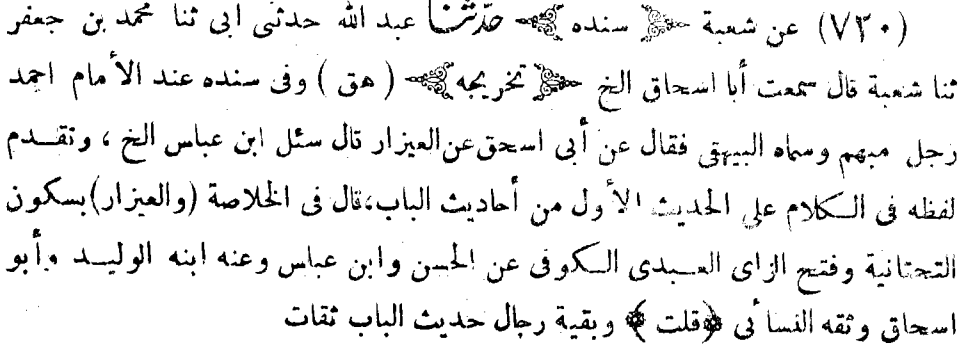 (٧٣٠) عن شعبة ﴿ سنده ﴾ حدثنا عبد الله حدثنى ابى ثنا محمد بن جعفر
ثنا شعبة قال سمعت أبا اسحاق الخ ﴿ تخريجه ﴾ ( هق ) وفى سنده عند الأمام احمد
رجل مبهم وسماه البيهقى فقال عن أبى اسحق عن العيزار قال سئل ابن عباس الخ ، وتقدم
لفظه فى الكلام على الحديث الأول من أحاديث الباب،قال فى الخلاصة (والعيزار)بسكون
التحتانية وفتح الزاى العبدى الكوفى عن الحسن وابن عباس وعنه ابنه الوليد وأبو
اسحاق وثقه النسائى ﴿قلت ﴾ وبقية رجال حديث الباب ثقات